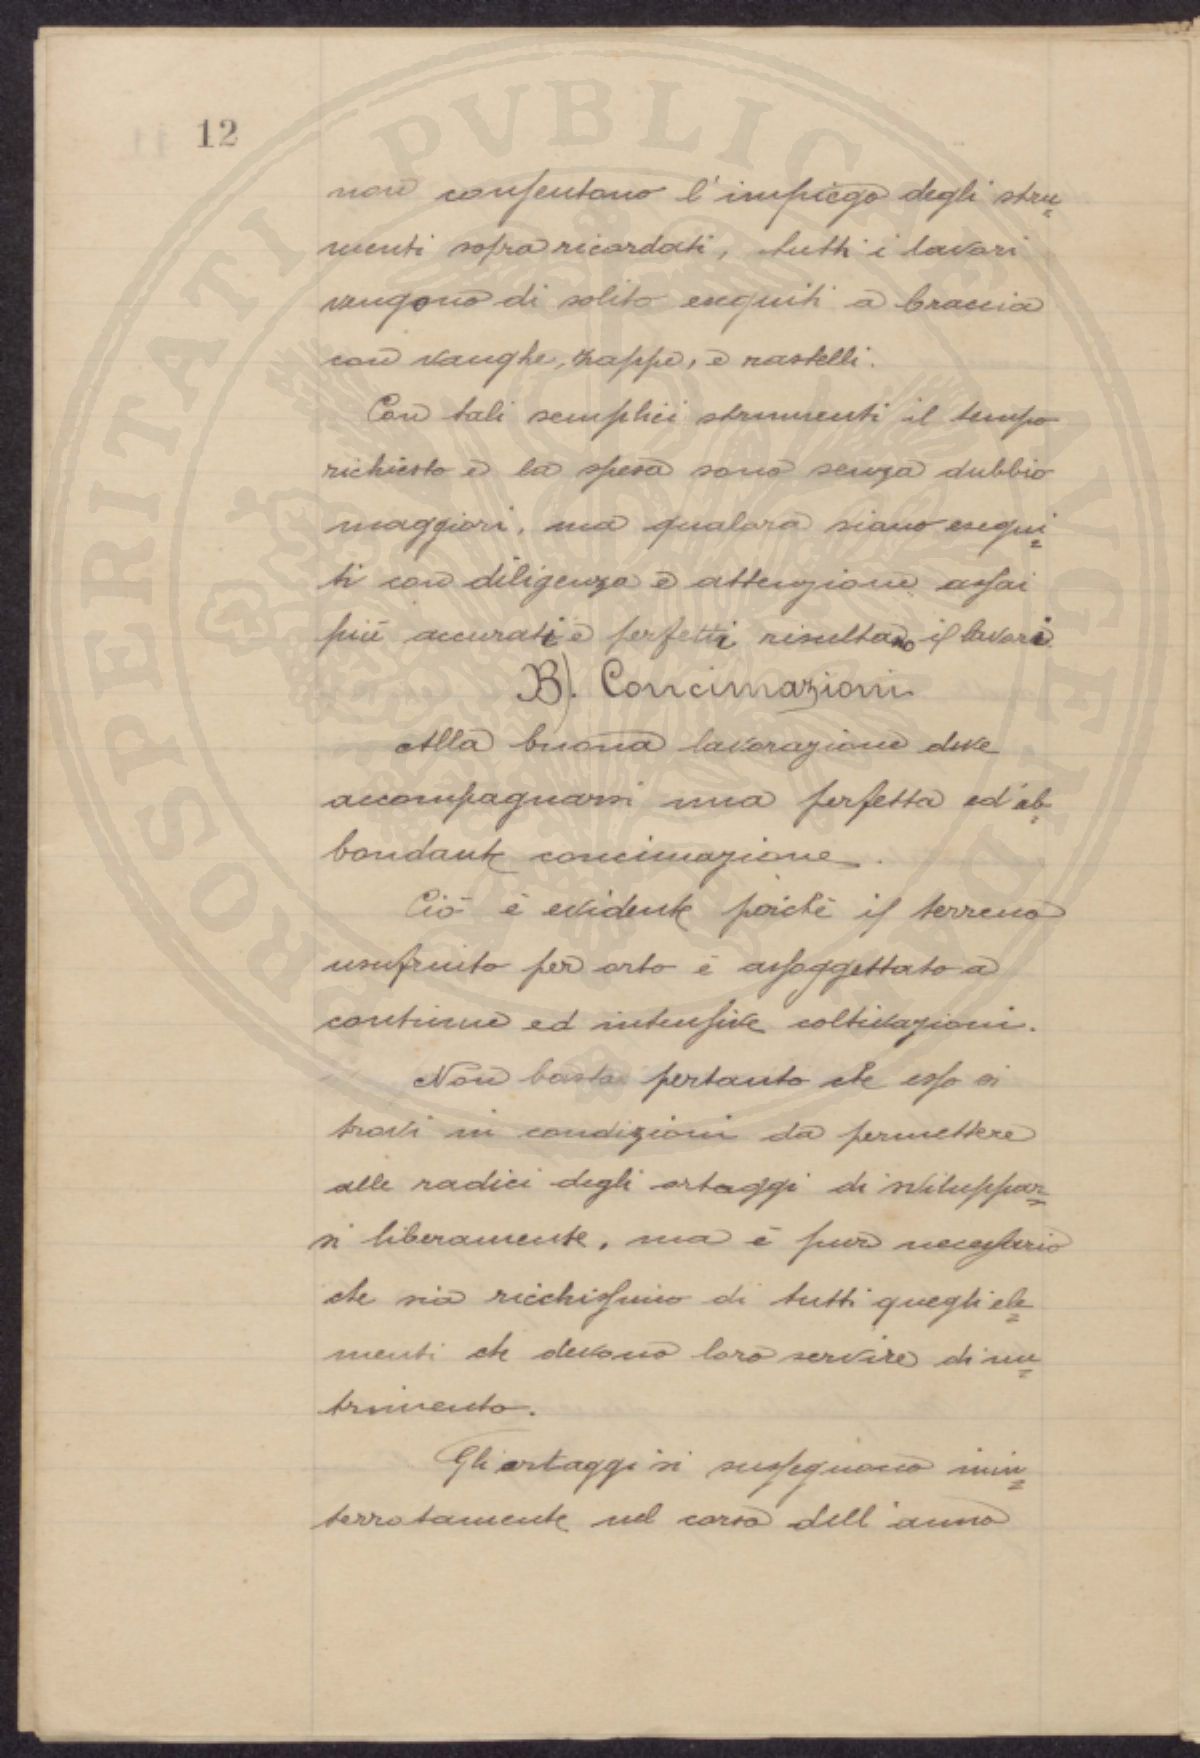 12
non consentano l'impiego degli stru=
menti sopra ricordati, tutti i lavori
vengono di solito eseguiti a braccia
con vanghe, zappe, e rastelli.
Con tali semplici strumenti il tempo
richiesto e la spesa sono senza dubbio
maggiori, ma qualora siano esegui=
ti con diligenza e attenzione assai
più accurati e perfetti risultano il lavori.
B). Concimazioni
Alla buona lavorazione deve
accompagnarsi una perfetta ed ab=
bondante concimazione.
Ciò è evidente poichè il terreno
usufruito per orto è assoggettato a
continue ed intensive coltivazioni.
Non basta pertanto che esso si
trovi in condizioni da permettere
alle radici degli ortaggi di sviluppar=
si liberamente, ma è pure necessario
che sia ricchissimo di tutti quegli ele=
menti che devono loro servire di nu=
trimento.
Gli ortaggi si susseguono inin=
terrotamente nel corso dell'anno
PROSPERITATI PVBLICAE AVGENDAE